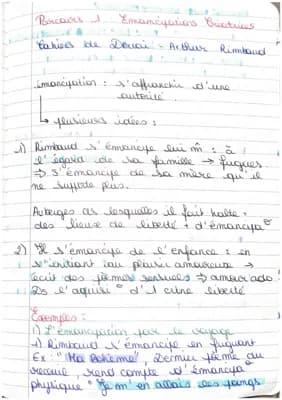 Parcours 1 Emancipations Créatrices
Cahiers de Douai - Arthur Rimbaud
émancipation : s'affranchir d'une
autorité.
↳ plusieurs idées :
1) Rimbaud s'émancipe lui m̂ : à
l'égard de sa famille → fugues.
⇒ s'émancipe de sa mère qu'il
ne supporte plus.
Auberges ds lesquelles il fait halte =
des lieux de liberté + d'émancipa°
2) Il s'émancipe de l'enfance : en
s'initiant au plaisir amoureux →
écrit des poèmes sensuels ⇒
Ds l'aquisi° d'1 liberté
Exemples :
1) L'émancipation par le voyage
→ Rimbaud s'émancipe en fuguant
Ex : "Ma Bohème", Dernier poème du
recueil, rend compte d'émancipa°
physique "Je m'en allais les poings